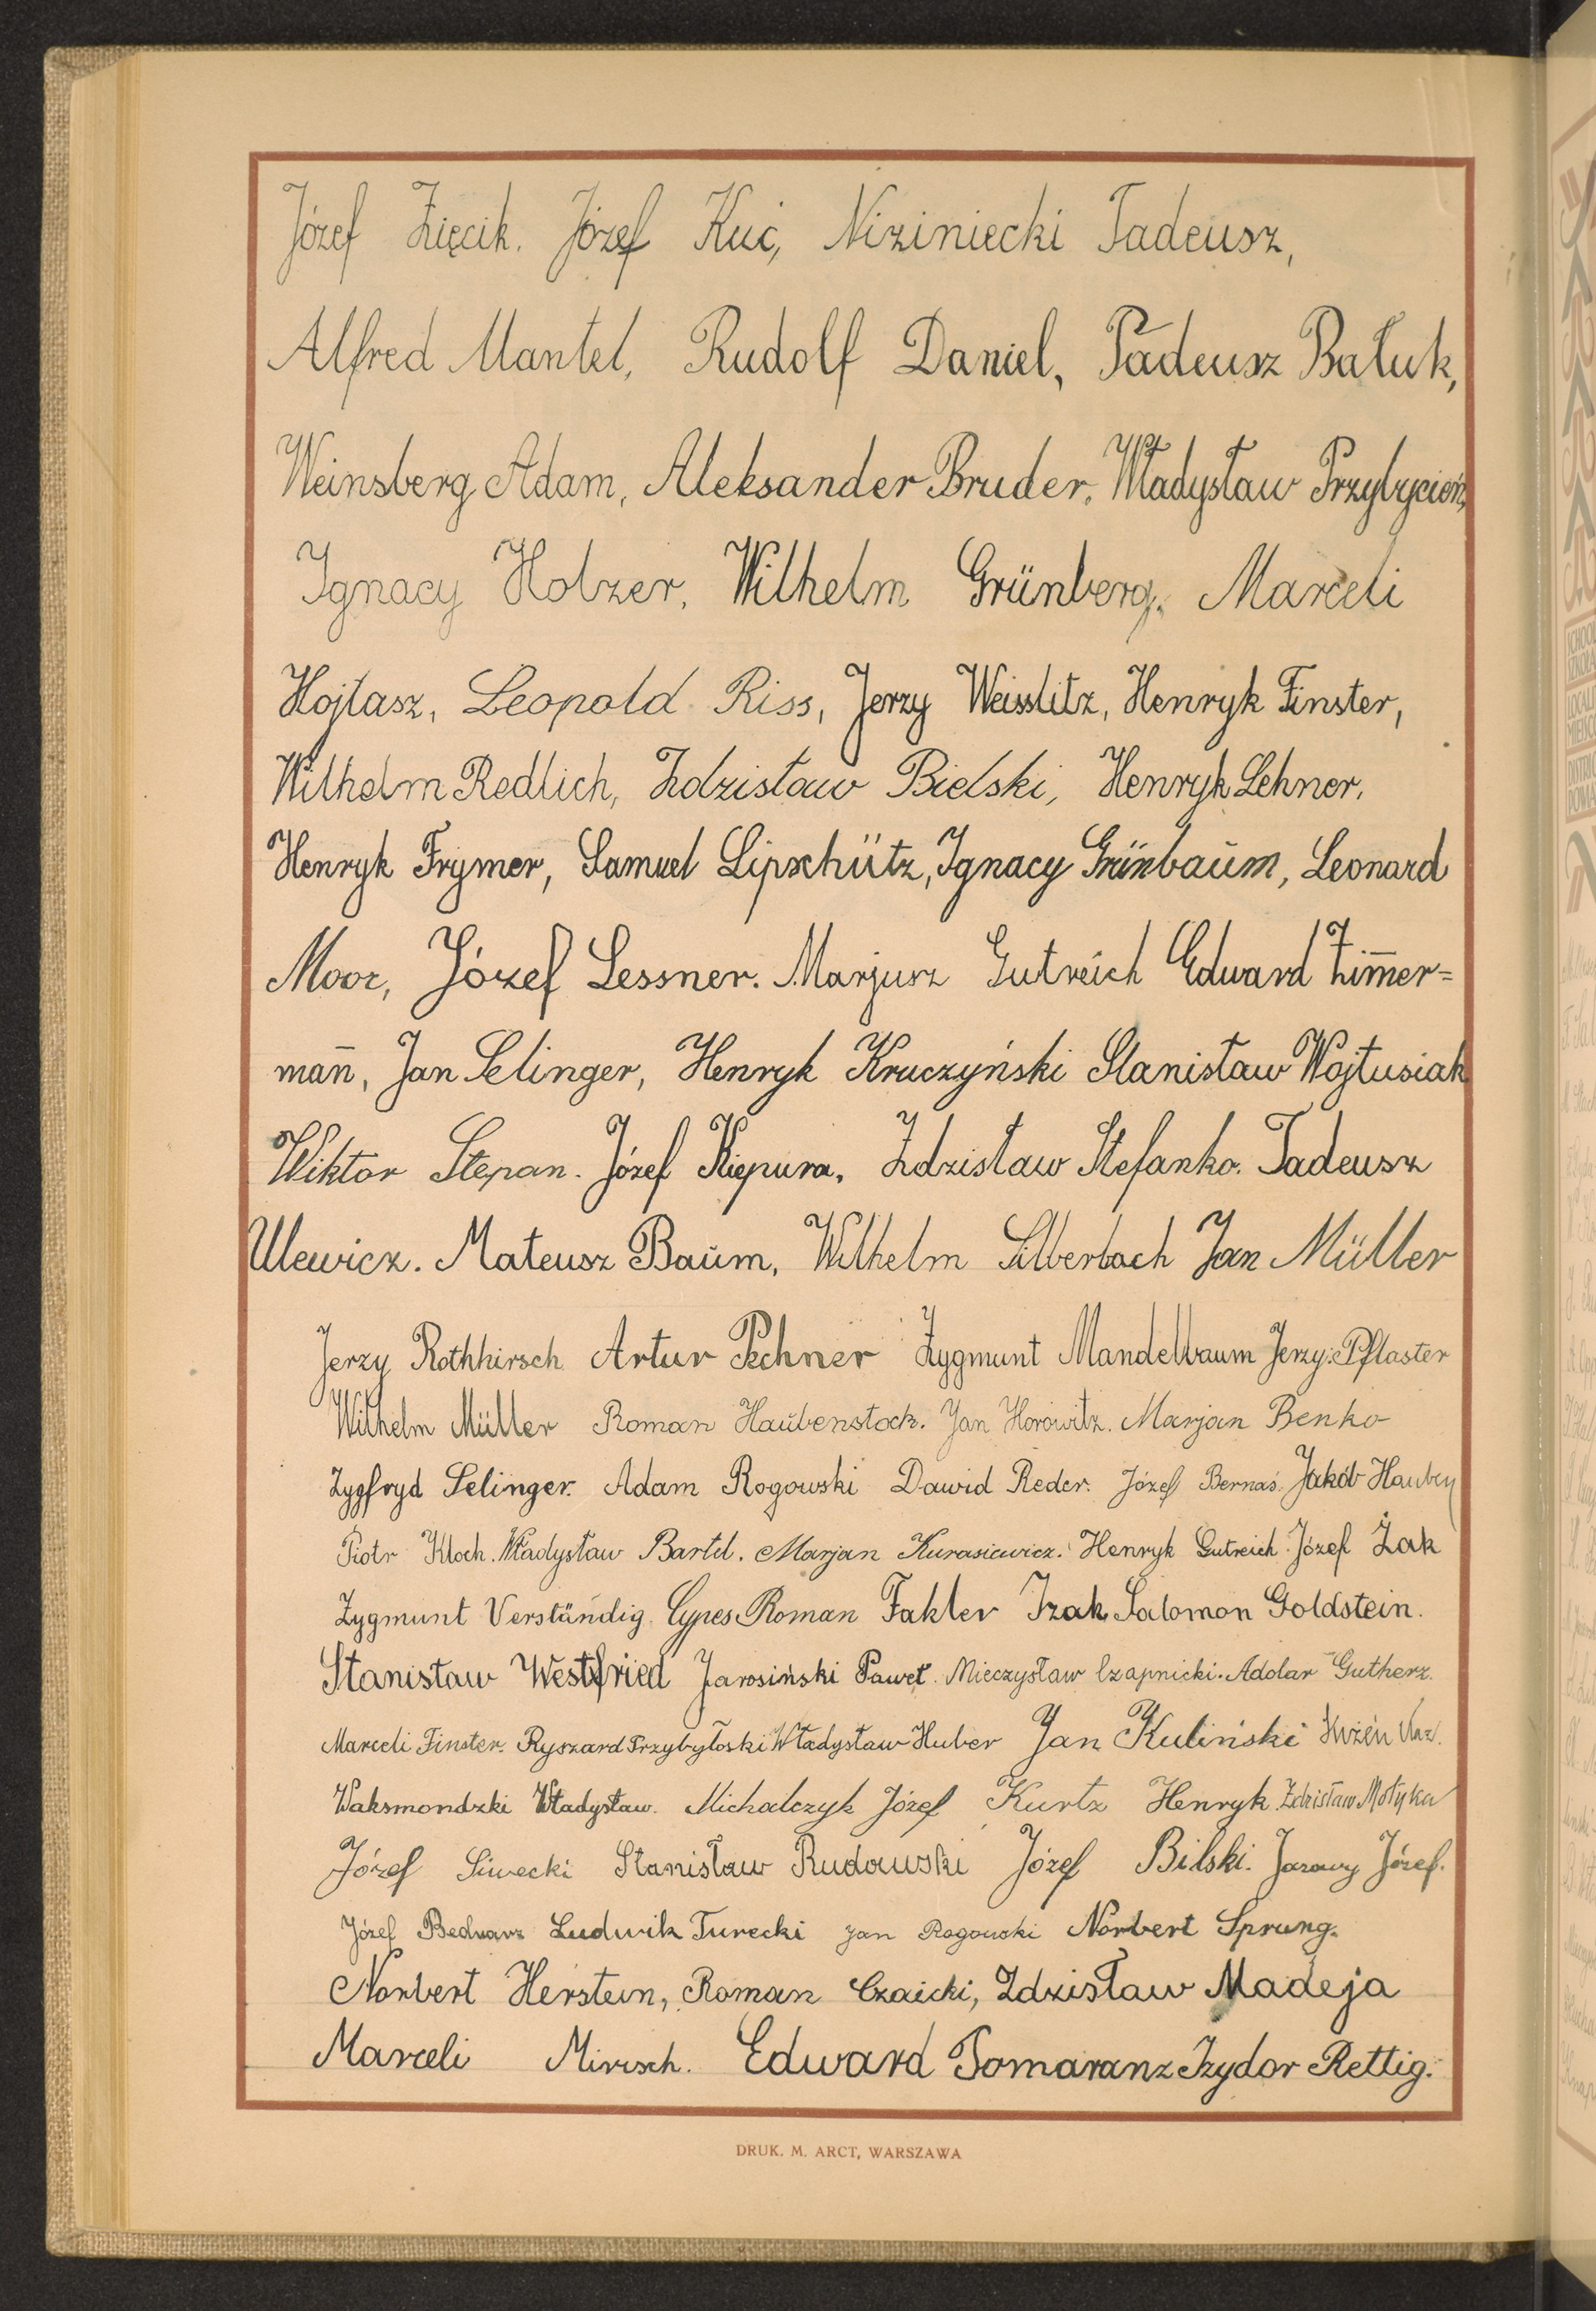 Józef Zięcik. Józef Kuć, Niziniecki Tadeusz,
Alfred Mantel, Rudolf Daniel, Tadeusz Bałuk,
Weinsberg Adam, Aleksander Bruder, Władysław Przybycień,
Ignacy Holzer, Wilhelm Grünberg, Marceli
Hojtasz, Leopold Riss, Jerzy Weisslitz, Henryk Finster,
Wilhelm Redlich, Zdzisław Bielski, Henryk Lehner,
Henryk Frymer, Samuel Lipschütz, Ignacy Grünbaŭm, Leonard
Moor, Józef Lessner. Marjusz Gutreich Edward Zim̄er=
man̄, Jan Selinger, Henryk Kruczyński Stanisław Wojtusiak
Wiktor Stepan. Józef Kiepura, Zdzisław Stefanko. Tadeusz
Ulewicz. Mateusz Baŭm, Wilhelm Silberbach Jan Müller
Jerzy Rothhirsch Artur Pechner Zygmunt Mandelbaum Jerzy Pflaster
Wilhelm Müller Roman Haŭbenstock. Jan Horowitz. Marjan Benko
Zygfryd Selinger. Adam Rogowski Dawid Reder. Józef Bernaś. Jakób
Piotr Kloch. Władysław Bartel. Marjan Kurasiewicz. Henryk Gutreich Józef Żak
Zygmunt Verständig. Cypes Roman Fakler Izak Salomon Goldstein.
Stanisław Westfried Jarosiński Paweł. Mieczysław Czapnicki. Adolar Gutherz.
Marceli Finster. Ryszard Przybyłoski Władysław Huber Jan Kuliński
Waksmondzki Władysław. Michalczyk Józef Kurtz Henryk. Zdzisław Motyka
Józef Siwecki Stanisław Rudowski Józef Bilski. Jarowy Józef.
Józef Bednarz Ludwik Turecki Jan Rogowski Norbert Sprung.
Norbert Herstein, Roman Czaicki, Zdzisław Madeja
Marceli Mirisch. Edward Pomaranz Izydor Rettig.
DRUK. M. ARCT, WARSZAWA